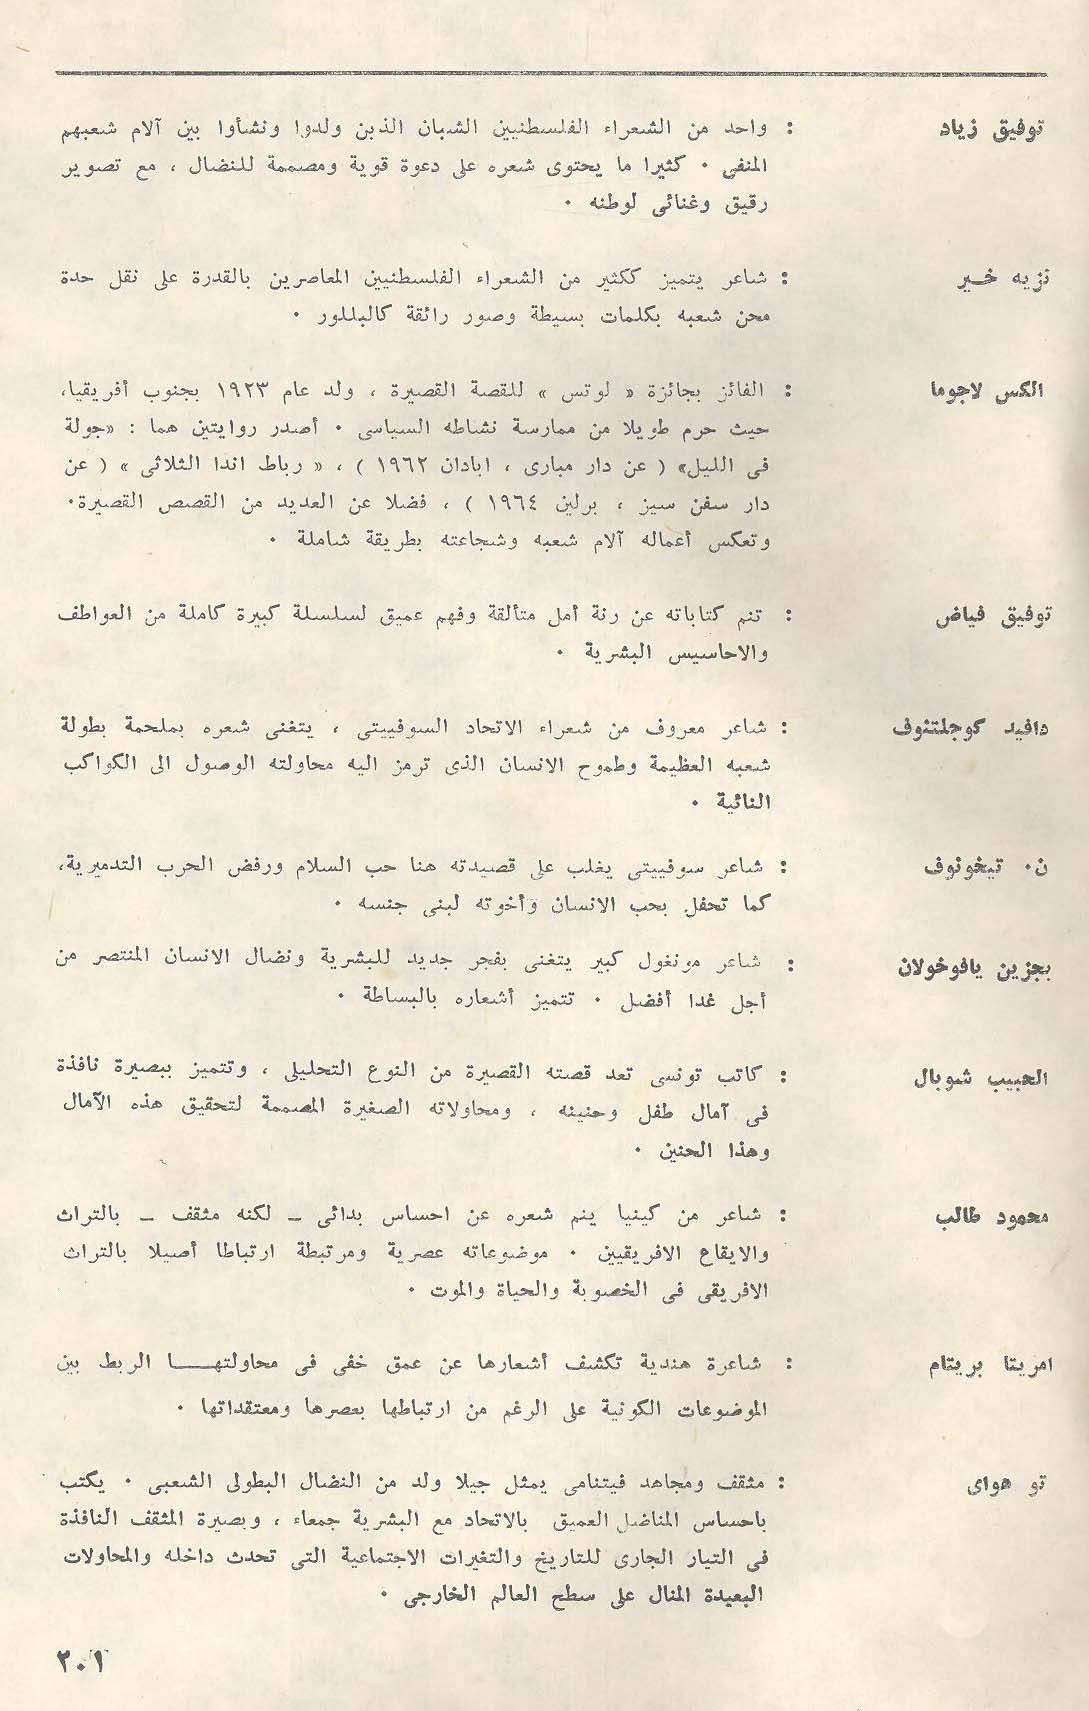 توفيق زياد : واحد من الشعراء الفلسطنيين الشبان الذين ولدوا ونشأوا بين آلام شعبهم
المنفى ٠ كثيرا ما يحتوى شعره على دعوة قوية ومصممة للنضال ، مع تصوير
رقيق وغنائى لوطنه ٠
نزيه خير : شاعر يتميز ككثير من الشعراء الفلسطنيين المعاصرين بالقدرة على نقل حدة
محن شعبه بكلمات بسيطة وصور رائقة كالبللور ٠
الكس لاجوما : الفائز بجائزة « لوتس » للقصة القصيرة ، ولد عام ١٩٢٣ بجنوب أفريقيا،
حيث حرم طويلا من ممارسة نشاطه السياسى ٠ أصدر روايتين هما : «جولة
فى الليل» ( عن دار مبارى ، ابادان ١٩٦٢ ) ، « رباط اندا الثلاثى » ( عن
دار سفن سيز ، برلين ١٩٦٤ ) ، فضلا عن العديد من القصص القصيرة٠
وتعكس أعماله آلام شعبه وشجاعته بطريقة شاملة ٠
توفيق فياض : تنم كتاباته عن رنة أمل متألقة وفهم عميق لسلسلة كبيرة كاملة من العواطف
والاحاسيس البشرية ٠
دافيد كوجلتنوف : شاعر معروف من شعراء الاتحاد السوفييتى ، يتغنى شعره بملحمة بطولة
شعبه العظيمة وطموح الانسان الذى ترمز اليه محاولته الوصول الى الكواكب
النائية ٠
ن٠ تيخونوف : شاعر سوفييتى يغلب على قصيدته هنا حب السلام ورفض الحرب التدميرية،
كما تحفل بحب الانسان وأخوته لبنى جنسه ٠
بجزين يافوخولان : شاعر مونغول كبير يتغنى بفجر جديد للبشرية ونضال الانسان المنتصر من
أجل غدا أفضل ٠ تتميز أشعاره بالبساطة ٠
الحبيب شوبال : كاتب تونسى تعد قصته القصيرة من النوع التحليلى ، وتتميز ببصيرة نافذة
فى آمال طفل وحنينه ، ومحاولاته الصغيرة المصممة لتحقيق هذه الآمال
وهذا الحنين ٠
محمود طالب : شاعر من كينيا ينم شعره عن احساس بدائى ــ لكنه مثقف ــ بالتراث
والايقاع الافريقيين ٠ موضوعاته عصرية ومرتبطة ارتباطا أصيلا بالتراث
الافريقى فى الخصوبة والحياة والموت ٠
امريتا بريتام : شاعرة هندية تكشف أشعارها عن عمق خفى فى محاولتهــا الربط بين
الموضوعات الكونية على الرغم من ارتباطها بعصرها ومعتقداتها ٠
تو هواى : مثقف ومجاهد فيتنامى يمثل جيلا ولد من النضال البطولى الشعبى ٠ يكتب
باحساس المناضل العميق بالاتحاد مع البشرية جمعاء ، وبصيرة المثقف النافذة
فى التيار الجارى للتاريخ والتغيرات الاجتماعية التى تحدث داخله والمحاولات
البعيدة المنال على سطح العالم الخارجى ٠
٢٠١